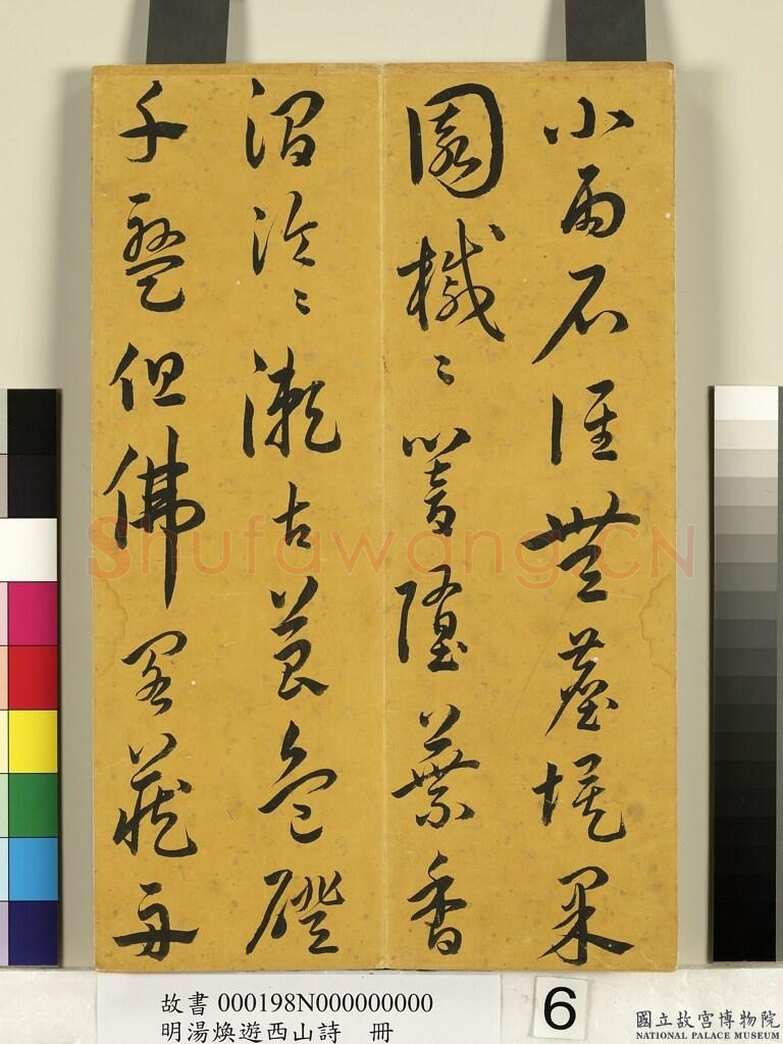 小雨石徑無塵埃果
園槭〻響墮葉香
澗泠〻漱古苔危磴
千盤但佛閣藏舟
Shufawang.CN
故書 000198N000000000
明湯煥遊西山詩 冊
6
國立故宮博物院
NATIONAL PALACE MUSEUM